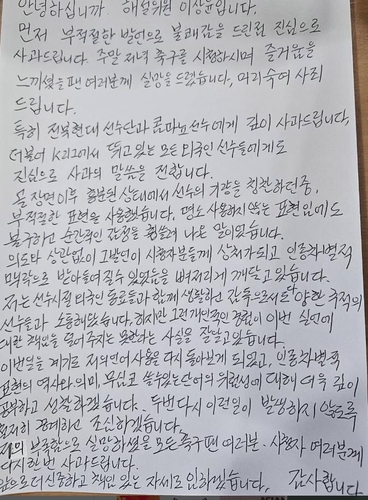 안녕하십니까. 해설위원 이상윤입니다.
먼저 부적절한 발언으로 불쾌감을 드린점 진심으로
사과드립니다. 주말 저녁 축구를 시청하시며 즐거움을
느끼셨을 팬 여러분께 실망을 드렸습니다. 머리숙여 사죄
드립니다.
특히 전북현대 선수단과 콤파뇨선수에게 깊이 사과드립니다.
더불어 K리그에서 뛰고있는 모든 외국인 선수들에게도
진심으로 사과의 말씀을 전합니다.
골 장면이후 흥분된 상태에서 선수의 기량을 칭찬하던중,
부적절한 표현을 사용했습니다. 평소 사용하지 않는 표현임에도
불구하고 순간적인 감정을 나온 말이었습니다.
의도와 상관없이 그발언이 시청자분들께 상처가되고 인종차별적
맥락으로 받아들여질수 있었음을 뼈저리게 깨닫고 있습니다.
저는 선수시절 외국인 동료들과 함께 생활하고 감독으로서도 다양한 국적의
선수들과 소통해왔습니다. 하지만 그런개인적인 경험이 이번 실언에
대한 책임을 덜어주지는 못한다는 사실을 잘알고 있습니다.
이번일을 계기로 저의언어사용을 다시 돌아보게 되었고, 인종차별적
표현의 역사와의미, 무심코 쓸수있는단어의 위험성에 대해 더욱 깊이
공부하고 성찰하겠습니다. 두번다시 이런일이 발생하지 않도록
철저히 경계하고 조심하겠습니다.
저의 부족함으로 실망하셨을 모든축구팬 여러분, 시청자 여러분께
다시한번 사과드립니다.
앞으로 더신중하고 책임 있는 자세로 임하겠습니다. 감사합니다